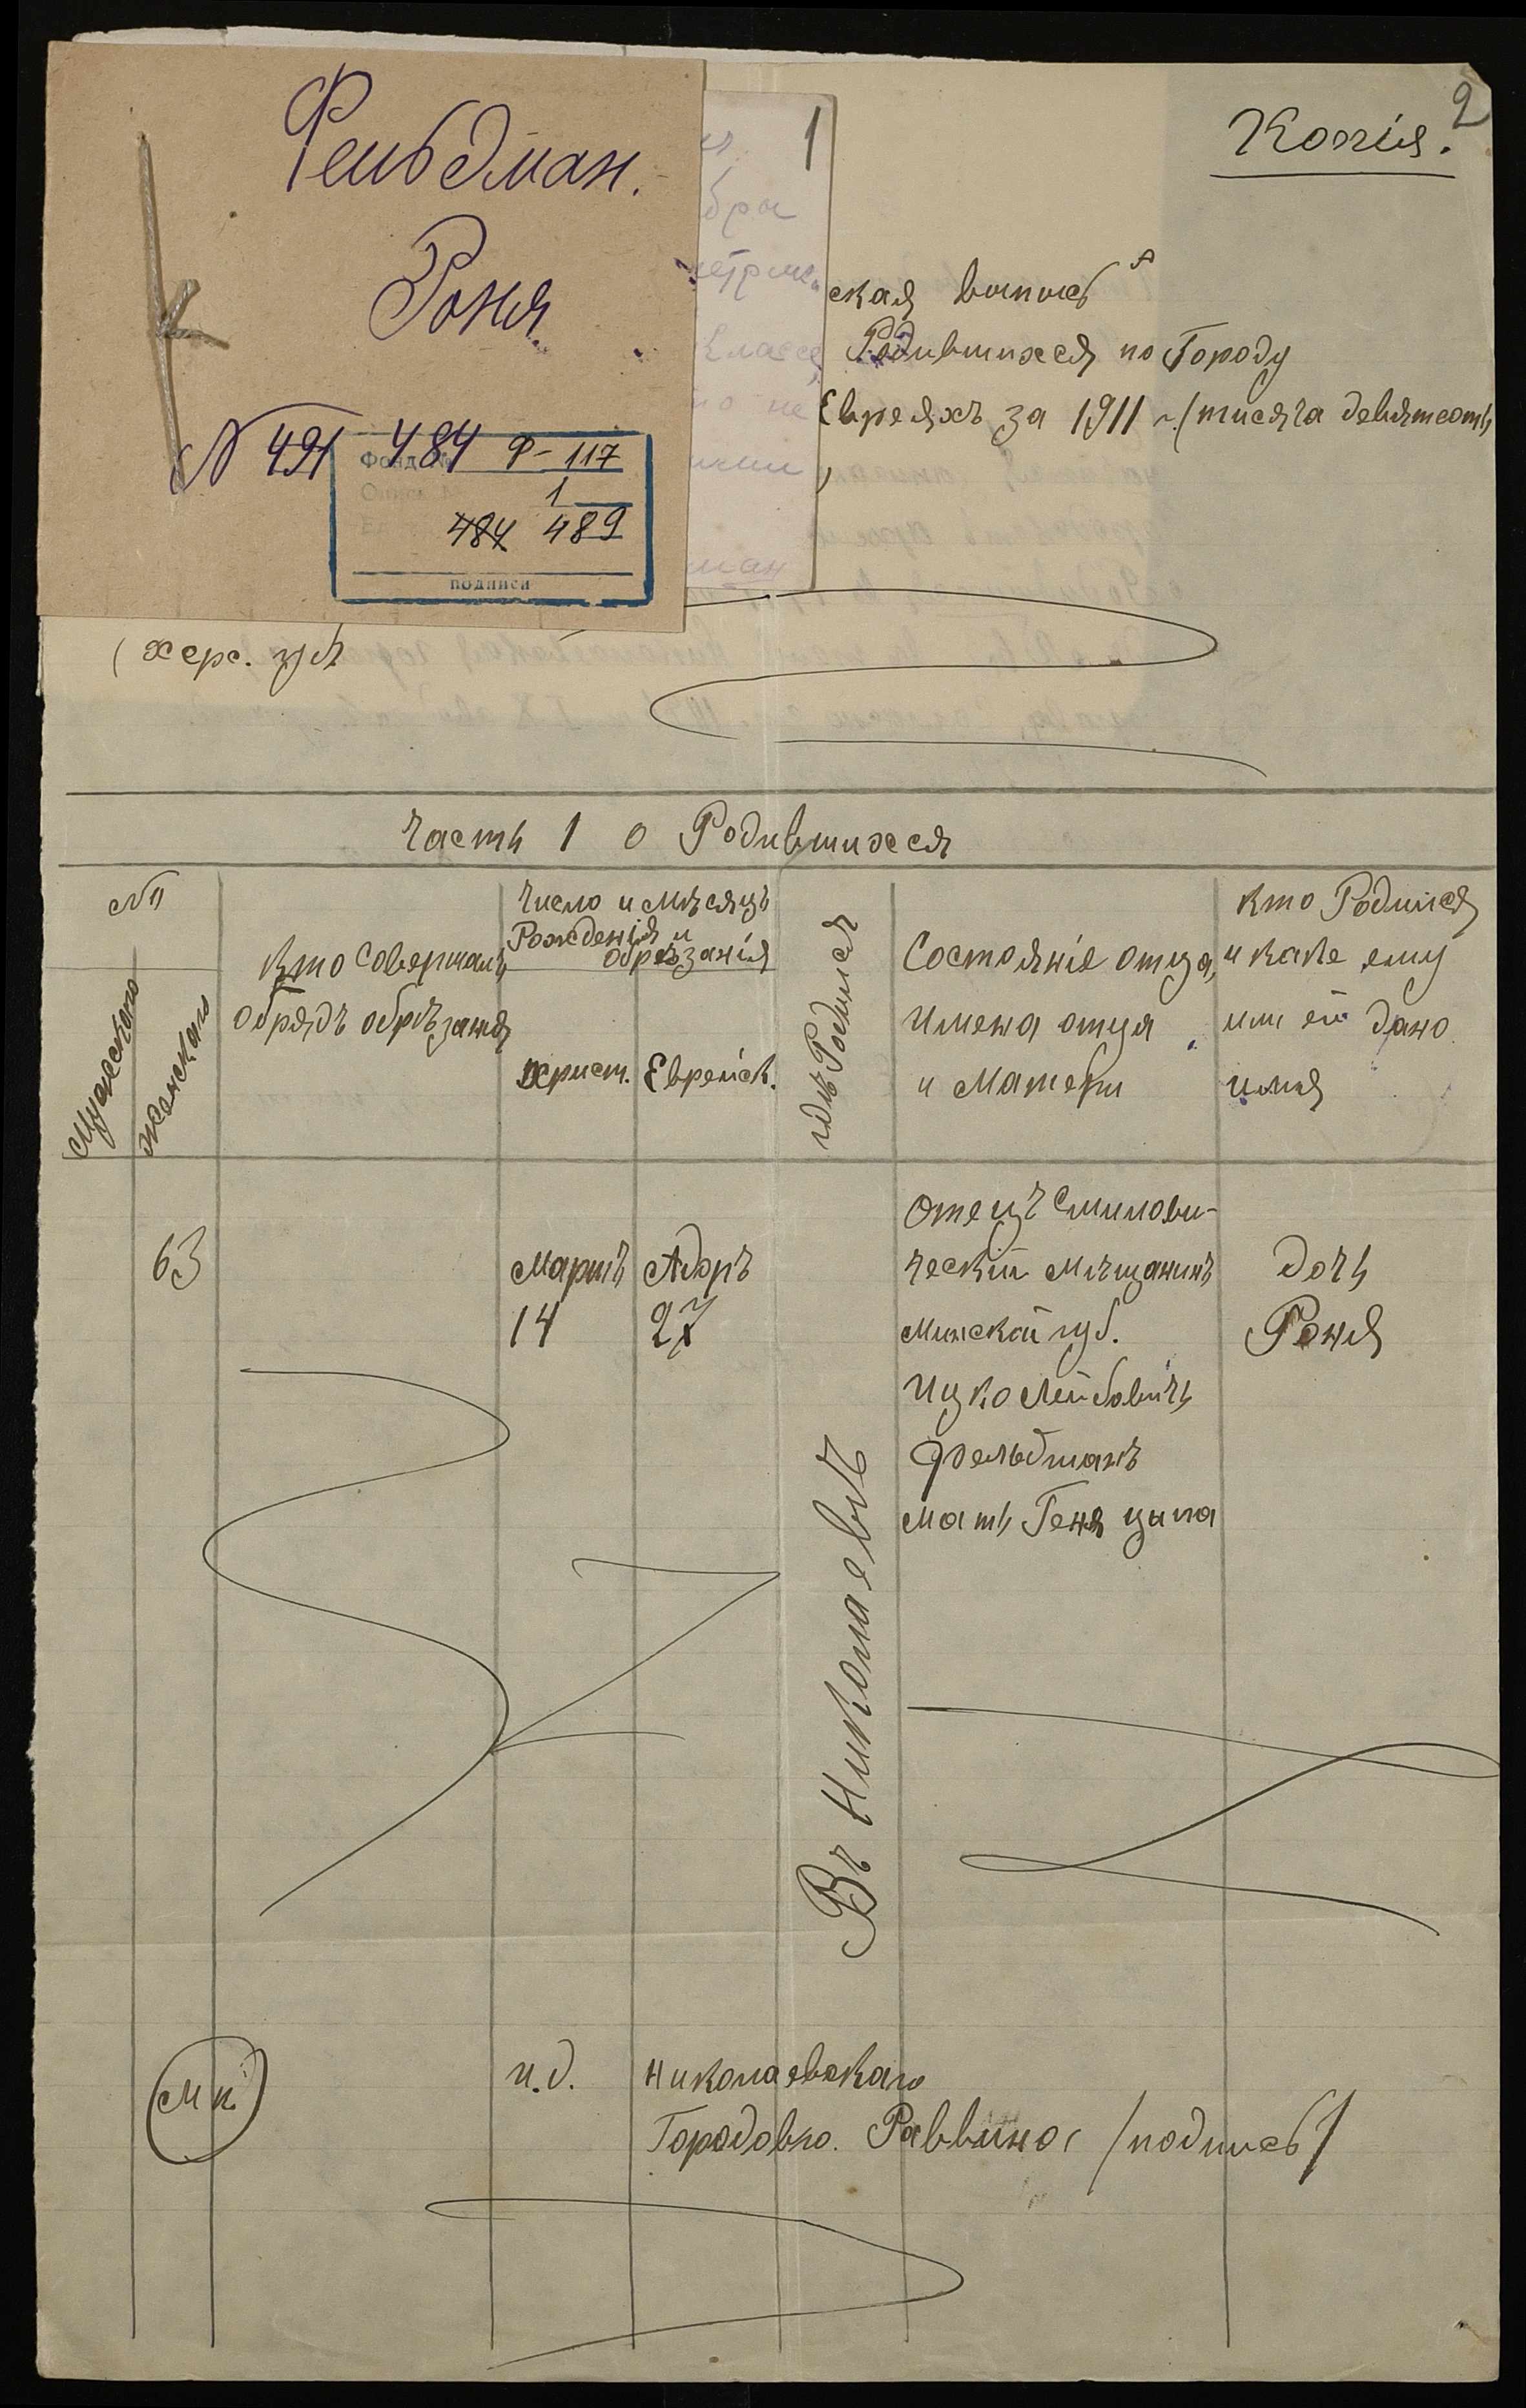 Фельдман.
Роня
N 491 484
Фонд № Ф-117
1
484 489
подписи
1
2
Копія.
ская выпись
Родившихся по Городу
Евреяхъ за 1911 г. (тисяча девятсотъ
(херс. губ
Часть 1 о Родившихся
№
Мужескаго
Женскаго
Кто Совершалъ
обрядъ обрѣзанія
Число и мѣсяцъ
Рожденія и
обрѣзанія
христ.
Еврейск.
гдѣ Родился
Состояніе отца,
Имена отца
и Матери
Кто Родился
и какое ему
или ей дано
имя
63
Мартъ
14
Адоръ
27
Въ Николаевѣ
Отецъ Смилови-
ческій мѣщанинъ
Минской губ.
Ицко Лейбовичъ
Фельдманъ
Мать Геня цыпа
дочь
Роня
(М п.)
и.д. Николаевскаго
Городовго. Раввина (подпись)